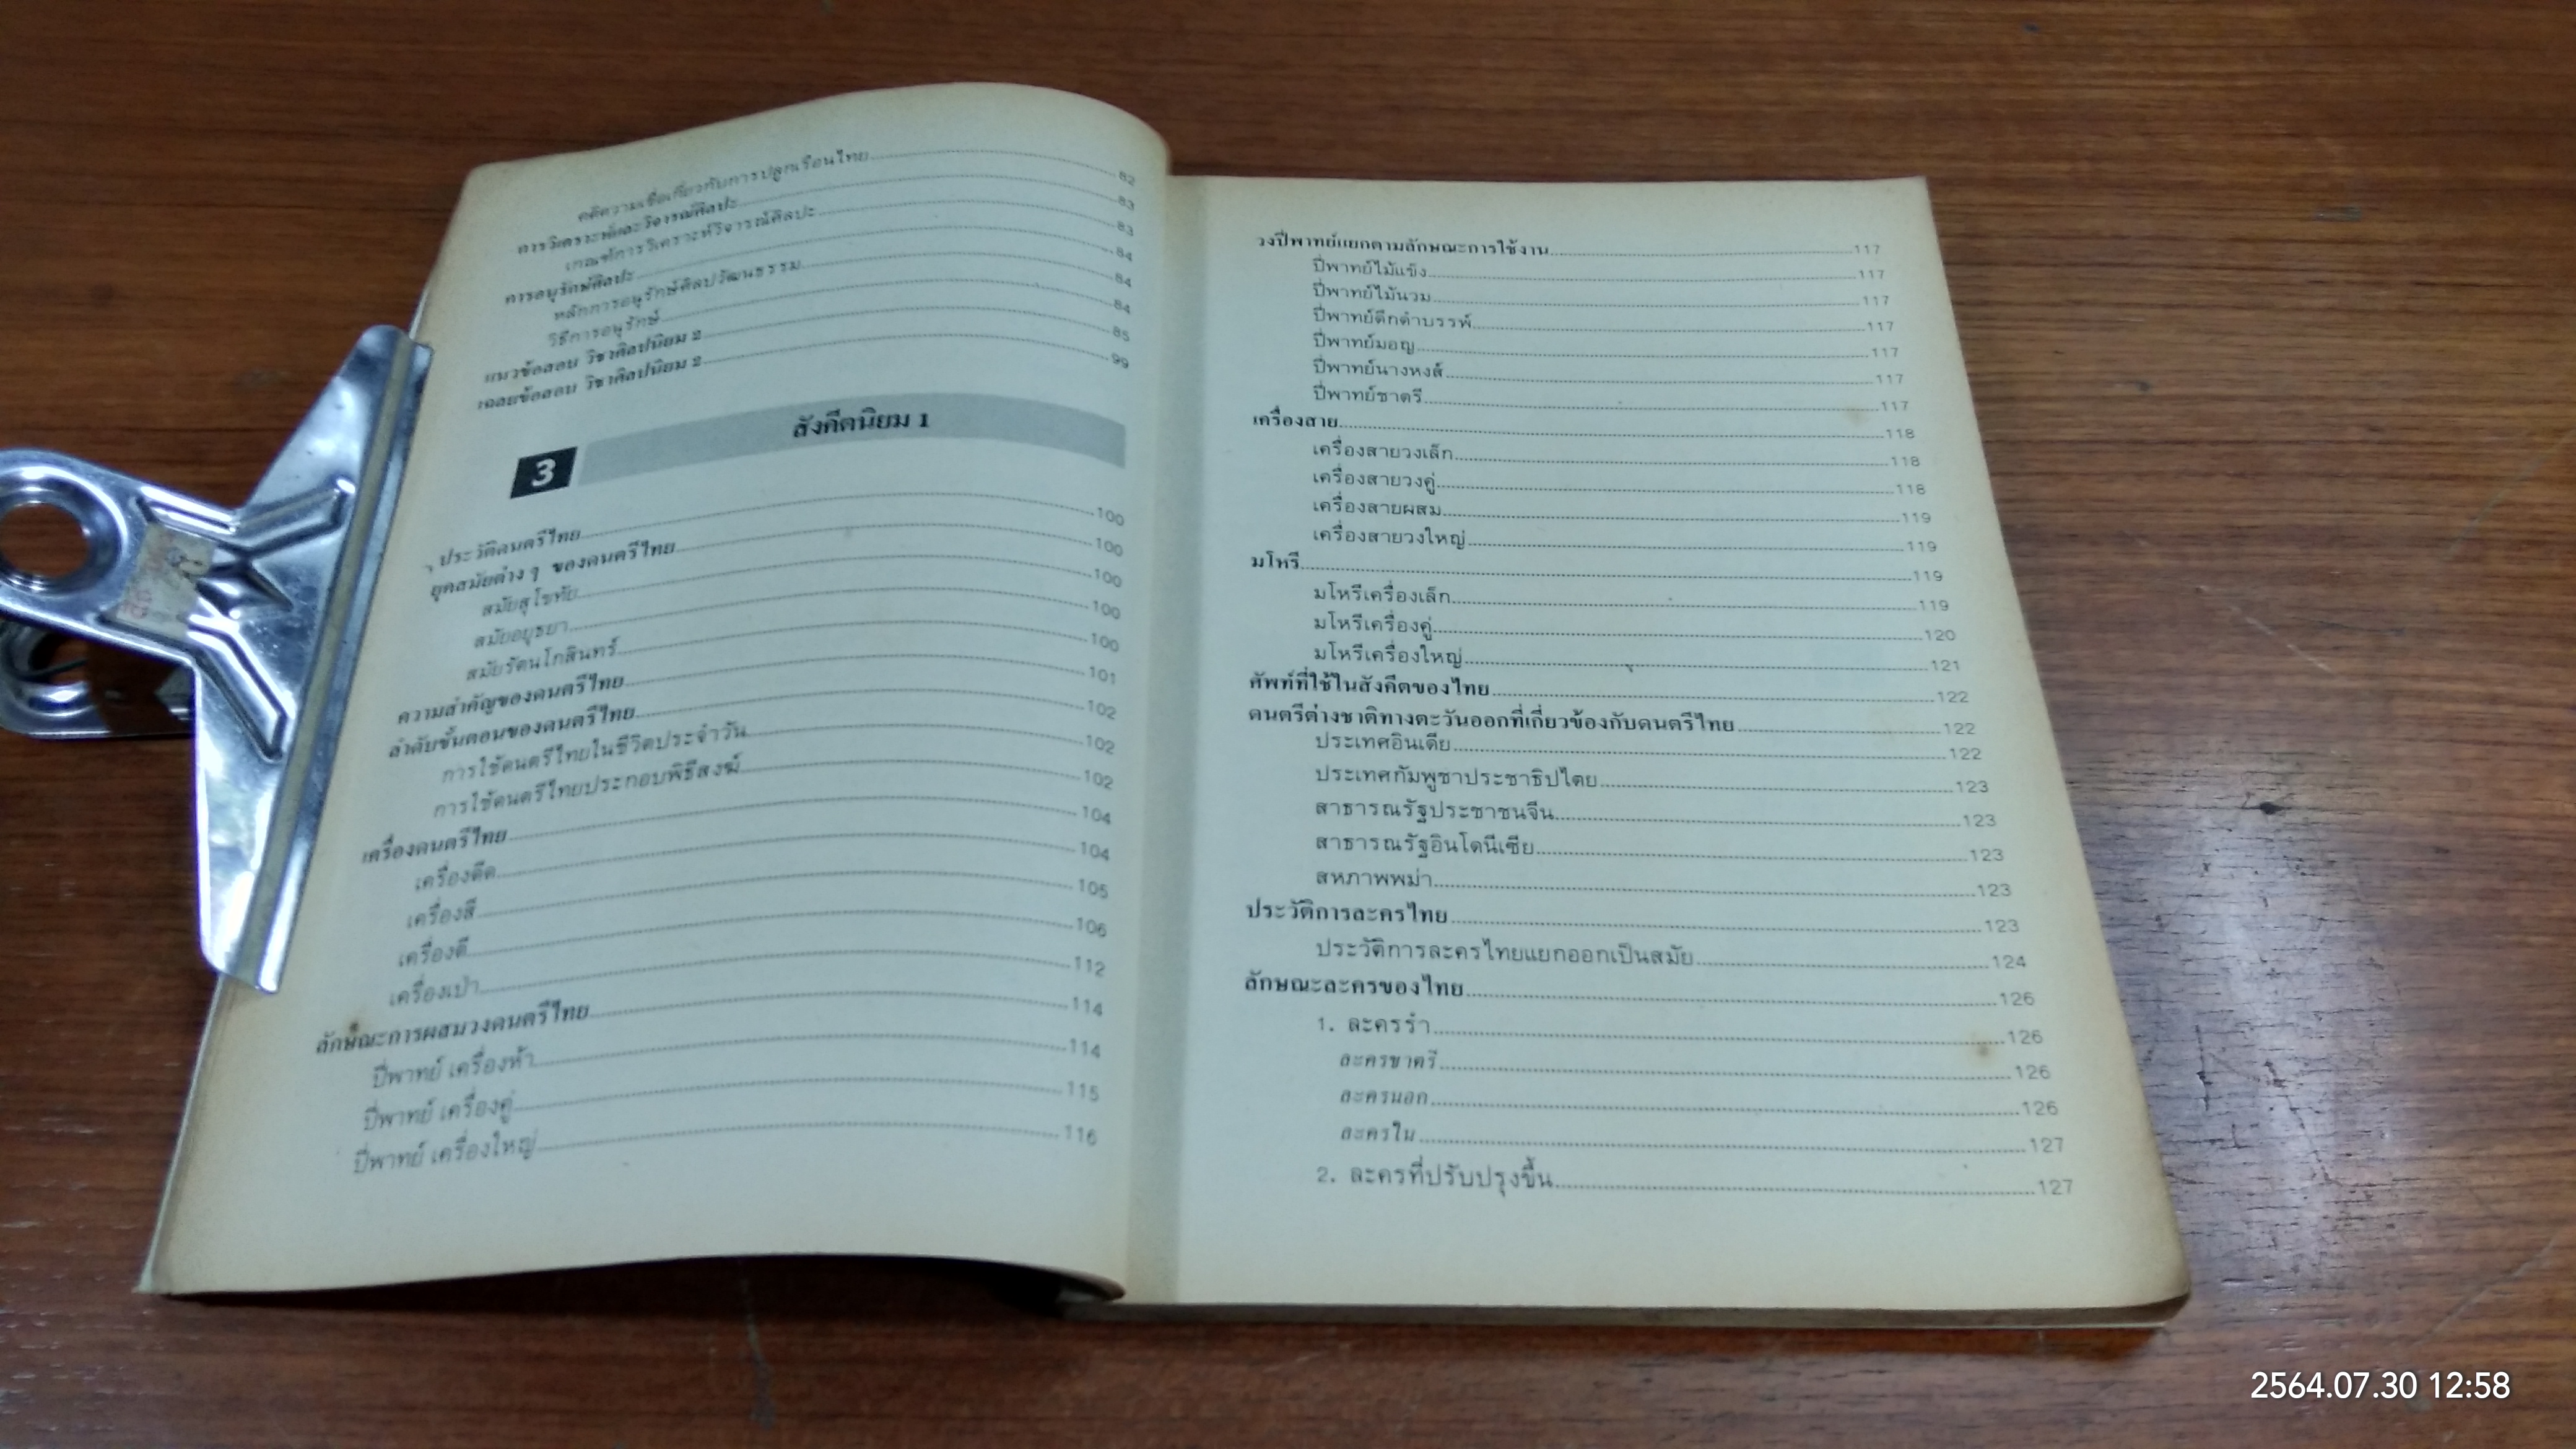 คติความเชื่อเกี่ยวกับการปลูกเรือนไทย 82
การวิเคราะห์และวิจารณ์ศิลปะ 83
เกณฑ์การวิเคราะห์วิจารณ์ศิลปะ 83
การอนุรักษ์ศิลปะ 84
หลักการอนุรักษ์ศิลปวัฒนธรรม 84
วิธีการอนุรักษ์ 84
แนวข้อสอบ วิชาศิลปนิยม 2 85
เฉลยข้อสอบ วิชาศิลปนิยม 2 99
3 สังคีตนิยม 1
ประวัติดนตรีไทย 100
ยุคสมัยต่าง ๆ ของดนตรีไทย 100
สมัยสุโขทัย 100
สมัยอยุธยา 100
สมัยรัตนโกสินทร์ 100
ความสำคัญของดนตรีไทย 101
ลำดับขั้นตอนของดนตรีไทย 102
การใช้ดนตรีไทยในชีวิตประจำวัน 102
การใช้ดนตรีไทยประกอบพิธีสงฆ์ 102
เครื่องดนตรีไทย 104
เครื่องดีด 104
เครื่องสี 105
เครื่องตี 106
เครื่องเป่า 112
ลักษณะการผสมวงดนตรีไทย 114
ปี่พาทย์ เครื่องห้า 114
ปี่พาทย์ เครื่องคู่ 115
ปี่พาทย์ เครื่องใหญ่ 116
วงปี่พาทย์แยกตามลักษณะการใช้งาน 117
ปี่พาทย์ไม้แข็ง 117
ปี่พาทย์ไม้นวม 117
ปี่พาทย์ดึกดำบรรพ์ 117
ปี่พาทย์มอญ 117
ปี่พาทย์นางหงส์ 117
ปี่พาทย์ชาตรี 117
เครื่องสาย 118
เครื่องสายวงเล็ก 118
เครื่องสายวงคู่ 118
เครื่องสายผสม 119
เครื่องสายวงใหญ่ 119
มโหรี 119
มโหรีเครื่องเล็ก 119
มโหรีเครื่องคู่ 120
มโหรีเครื่องใหญ่ 121
ศัพท์ที่ใช้ในสังคีตของไทย 122
ดนตรีต่างชาติทางตะวันออกที่เกี่ยวข้องกับดนตรีไทย 122
ประเทศอินเดีย 122
ประเทศกัมพูชาประชาธิปไตย 123
สาธารณรัฐประชาชนจีน 123
สาธารณรัฐอินโดนีเซีย 123
สหภาพพม่า 123
ประวัติการละครไทย 123
ประวัติการละครไทยแยกออกเป็นสมัย 124
ลักษณะละครของไทย 126
1. ละครรำ 126
ละครชาตรี 126
ละครนอก 126
ละครใน 127
2. ละครที่ปรับปรุงขึ้น 127
2564.07.30 12:58